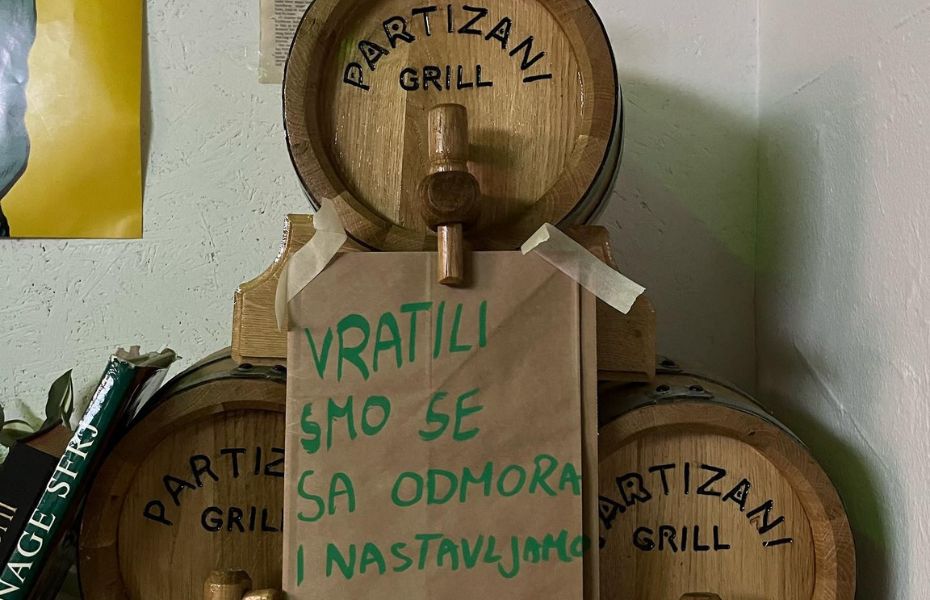 PARTIZANI
GRILL
VRATILI
SMO SE
SA ODMORA
I NASTAVLJAMO
PARTIZ
GRILL
PARTIZANI
GRILL
NAGE SFRJ